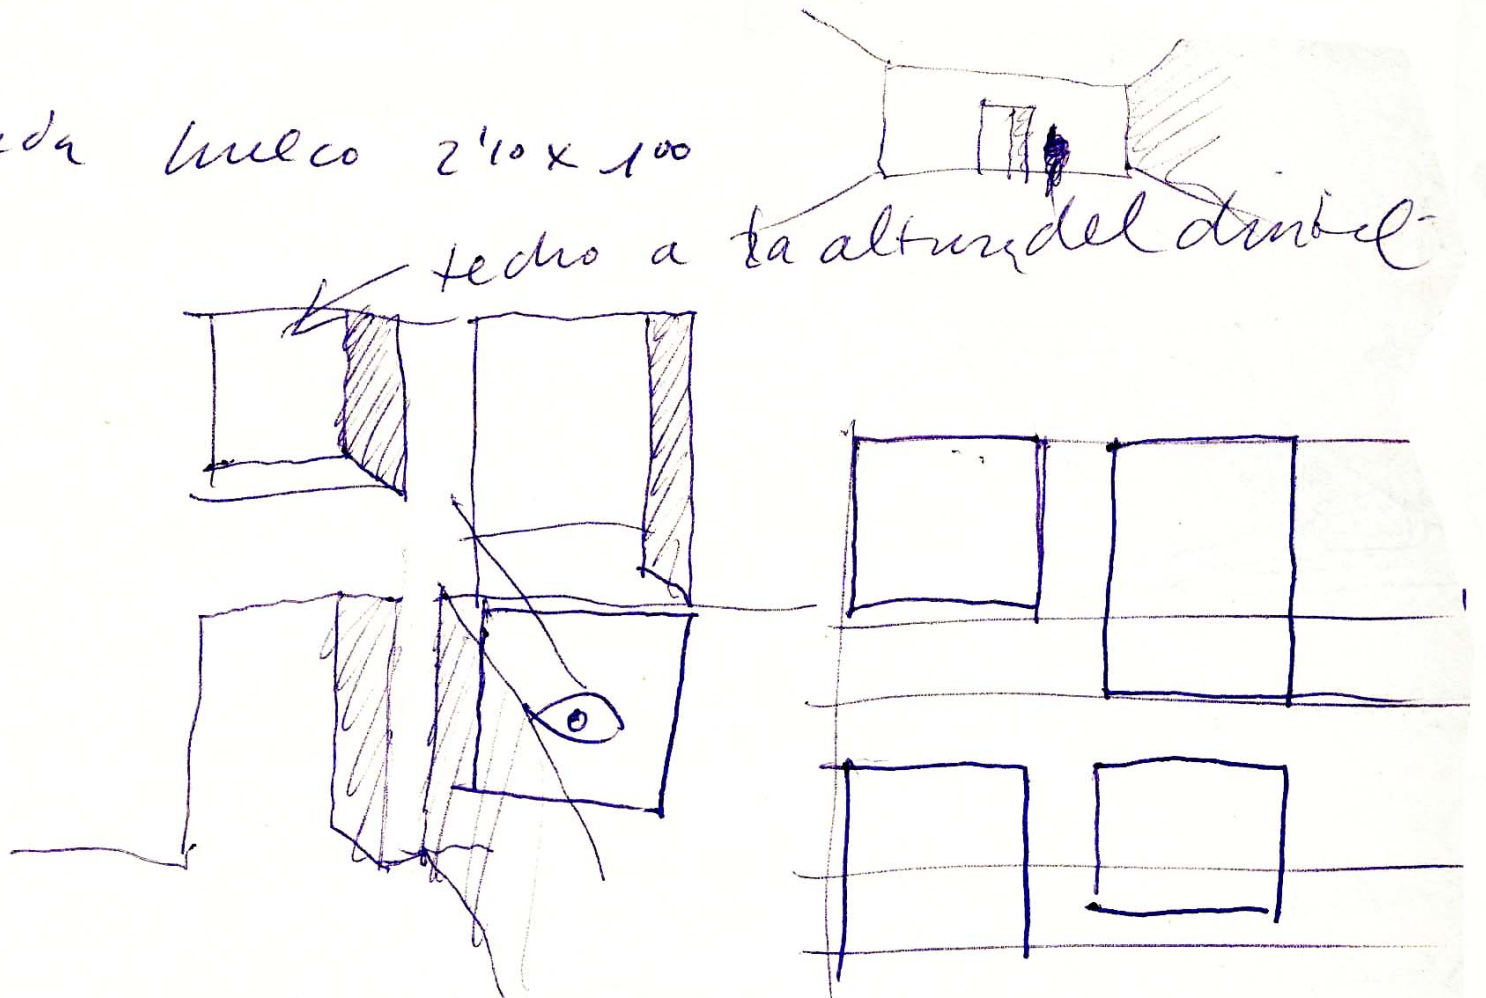 hueco 2'10 x 1'00
techo a la altura del dintel